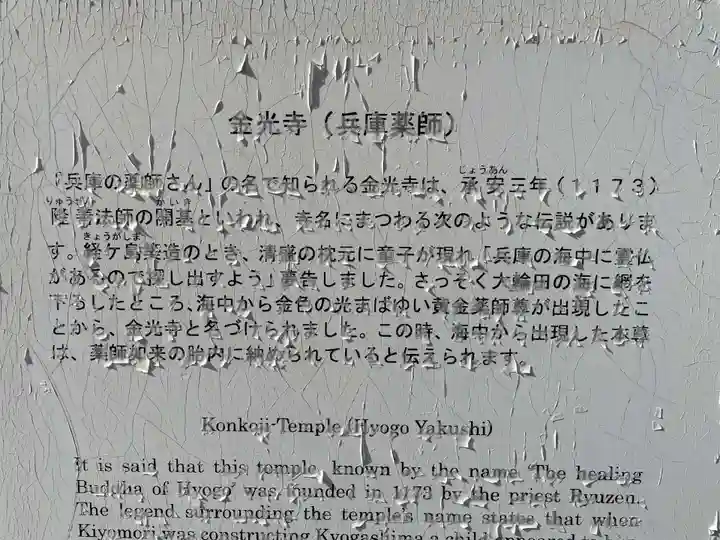 金光寺（兵庫薬師）
じょうあん
「兵庫の薬師さん」の名で知られる金光寺は、承安三年（１１７３）
りゅうぜん かいき
隆善法師の開基といわれ、寺名にまつわる次のような伝説がありま
きょうがしま
す。経ケ島築造のとき、清盛の枕元に童子が現れ「兵庫の海中に霊仏
があるので探し出すよう」夢告しました。さっそく大輪田の海に網を
下ろしたところ、海中から金色の光まばゆい黄金薬師尊が出現したこ
とから、金光寺と名づけられました。この時、海中から出現した本尊
は、薬師如来の胎内に納められていると伝えられます。
Konkoji-Temple (Hyogo Yakushi)
It is said that this temple, known by the name "The healing
Buddha of Hyogo" was founded in 1173 by the priest Ryuzen.
The legend surrounding the temple's name states that when
Kiyomori was constructing Kyogashima a child appeared to